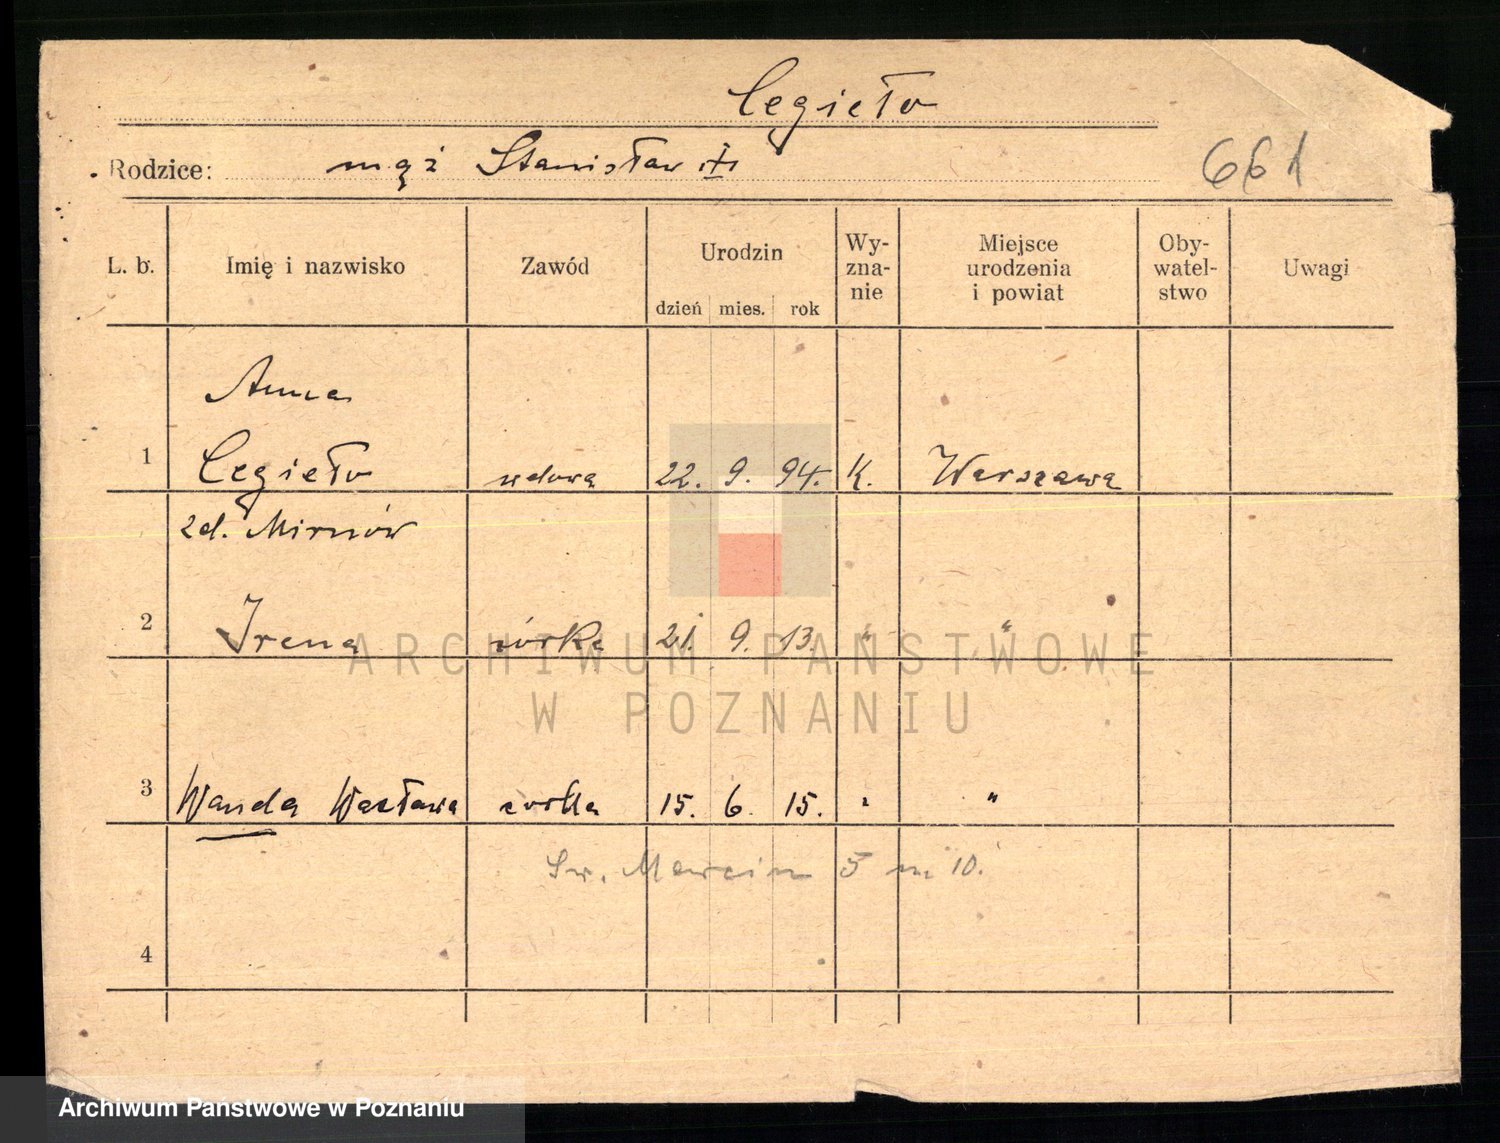 Cegieło
Rodzice: mąż Stanisław
661
L. b. Imię i nazwisko Zawód Urodzin dzień mies. rok Wy-zna-nie Miejsce urodzenia i powiat Oby-watel-stwo Uwagi
Anna
1 Cegieło wdowa 22. 9. 94. K. Warszawa
zd. Mirnów
2 Irena córka 21. 9. 13. " "
3 Wanda Wacława córka 15. 6. 15. " "
Św. Marcin 5 m 10.
4
ARCHIWUM PAŃSTWOWE
W POZNANIU
Archiwum Państwowe w Poznaniu